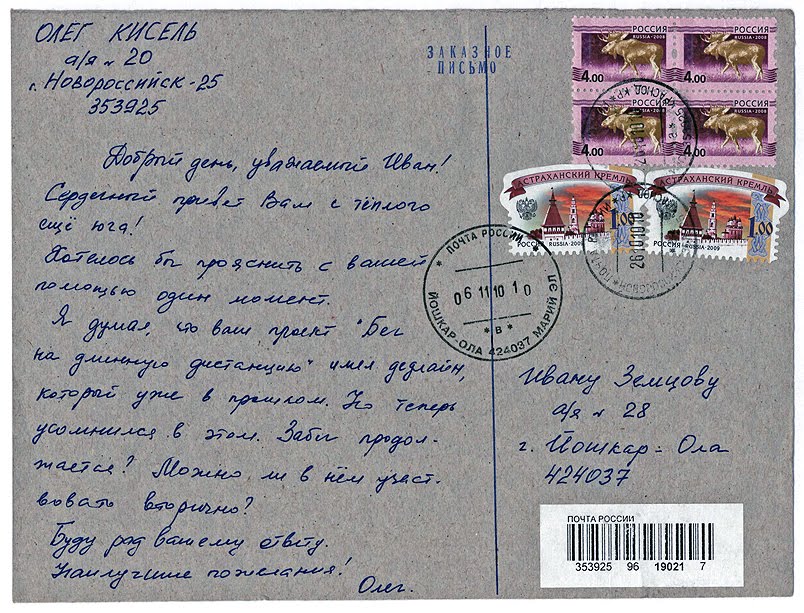 ОЛЕГ КИСЕЛЬ
а/я № 20
г. Новороссийск-25
353925
Добрый день, уважаемый Иван!
Сердечный привет Вам с тёплого
ещё юга!
Хотелось бы прояснить с вашей
помощью один момент.
Я думал, что ваш проект "Бег
на длинную дистанцию" имел дедлайн,
который уже в прошлом. Но теперь
усомнился в этом. Забег продол-
жается? Можно ли в нём участ-
вовать вторично?
Буду рад вашему ответу.
Наилучшие пожелания!
Олег.
ЗАКАЗНОЕ
ПИСЬМО
РОССИЯ
RUSSIA·2008
4.00
РОССИЯ
RUSSIA·2008
4.00
РОССИЯ
4.00
РОССИЯ
4.00
АСТРАХАНСКИЙ КРЕМЛЬ
1.00
РОССИЯ RUSSIA·2009
АСТРАХАНСКИЙ КРЕМЛЬ
1.00
РОССИЯ RUSSIA·2009
ПОЧТА РОССИИ
06 11 10 10
*В*
ЙОШКАР-ОЛА 424037 МАРИЙ ЭЛ
26101010
Ивану Земцову
а/я № 28
г. Йошкар-Ола
424037
ПОЧТА РОССИИ
353925 96 19021 7